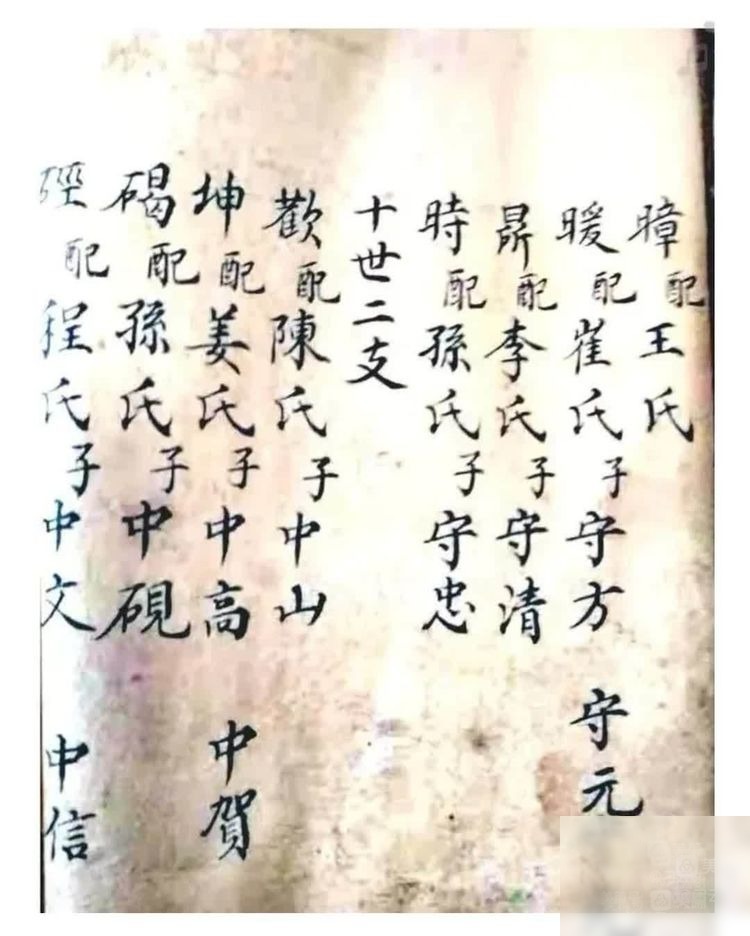 暲配王氏
暖配崔氏子守方 守元
昴配李氏子守清
時配孫氏子守忠
十世二支
歡配陳氏子中山
坤配姜氏子中高 中賀
碣配孫氏子中硯
硜配程氏子中文 中信